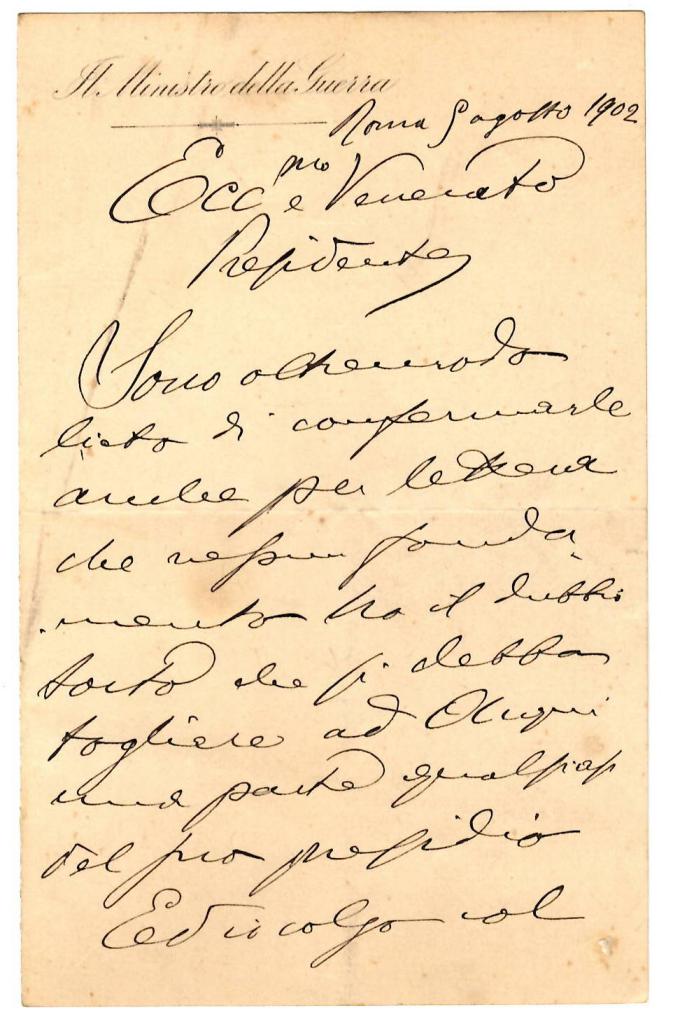 Il Ministro della Guerra
Roma agosto 1902
Ecc.mo e Venerato
Presidente,
Sono oltremodo
lieto di confermarle
anche per lettera
che nessun fonda-
mento ha il dubbio
sorto che si debba
togliere ad Acqui
una parte qualsiasi
del suo presidio
Ed io colgo col